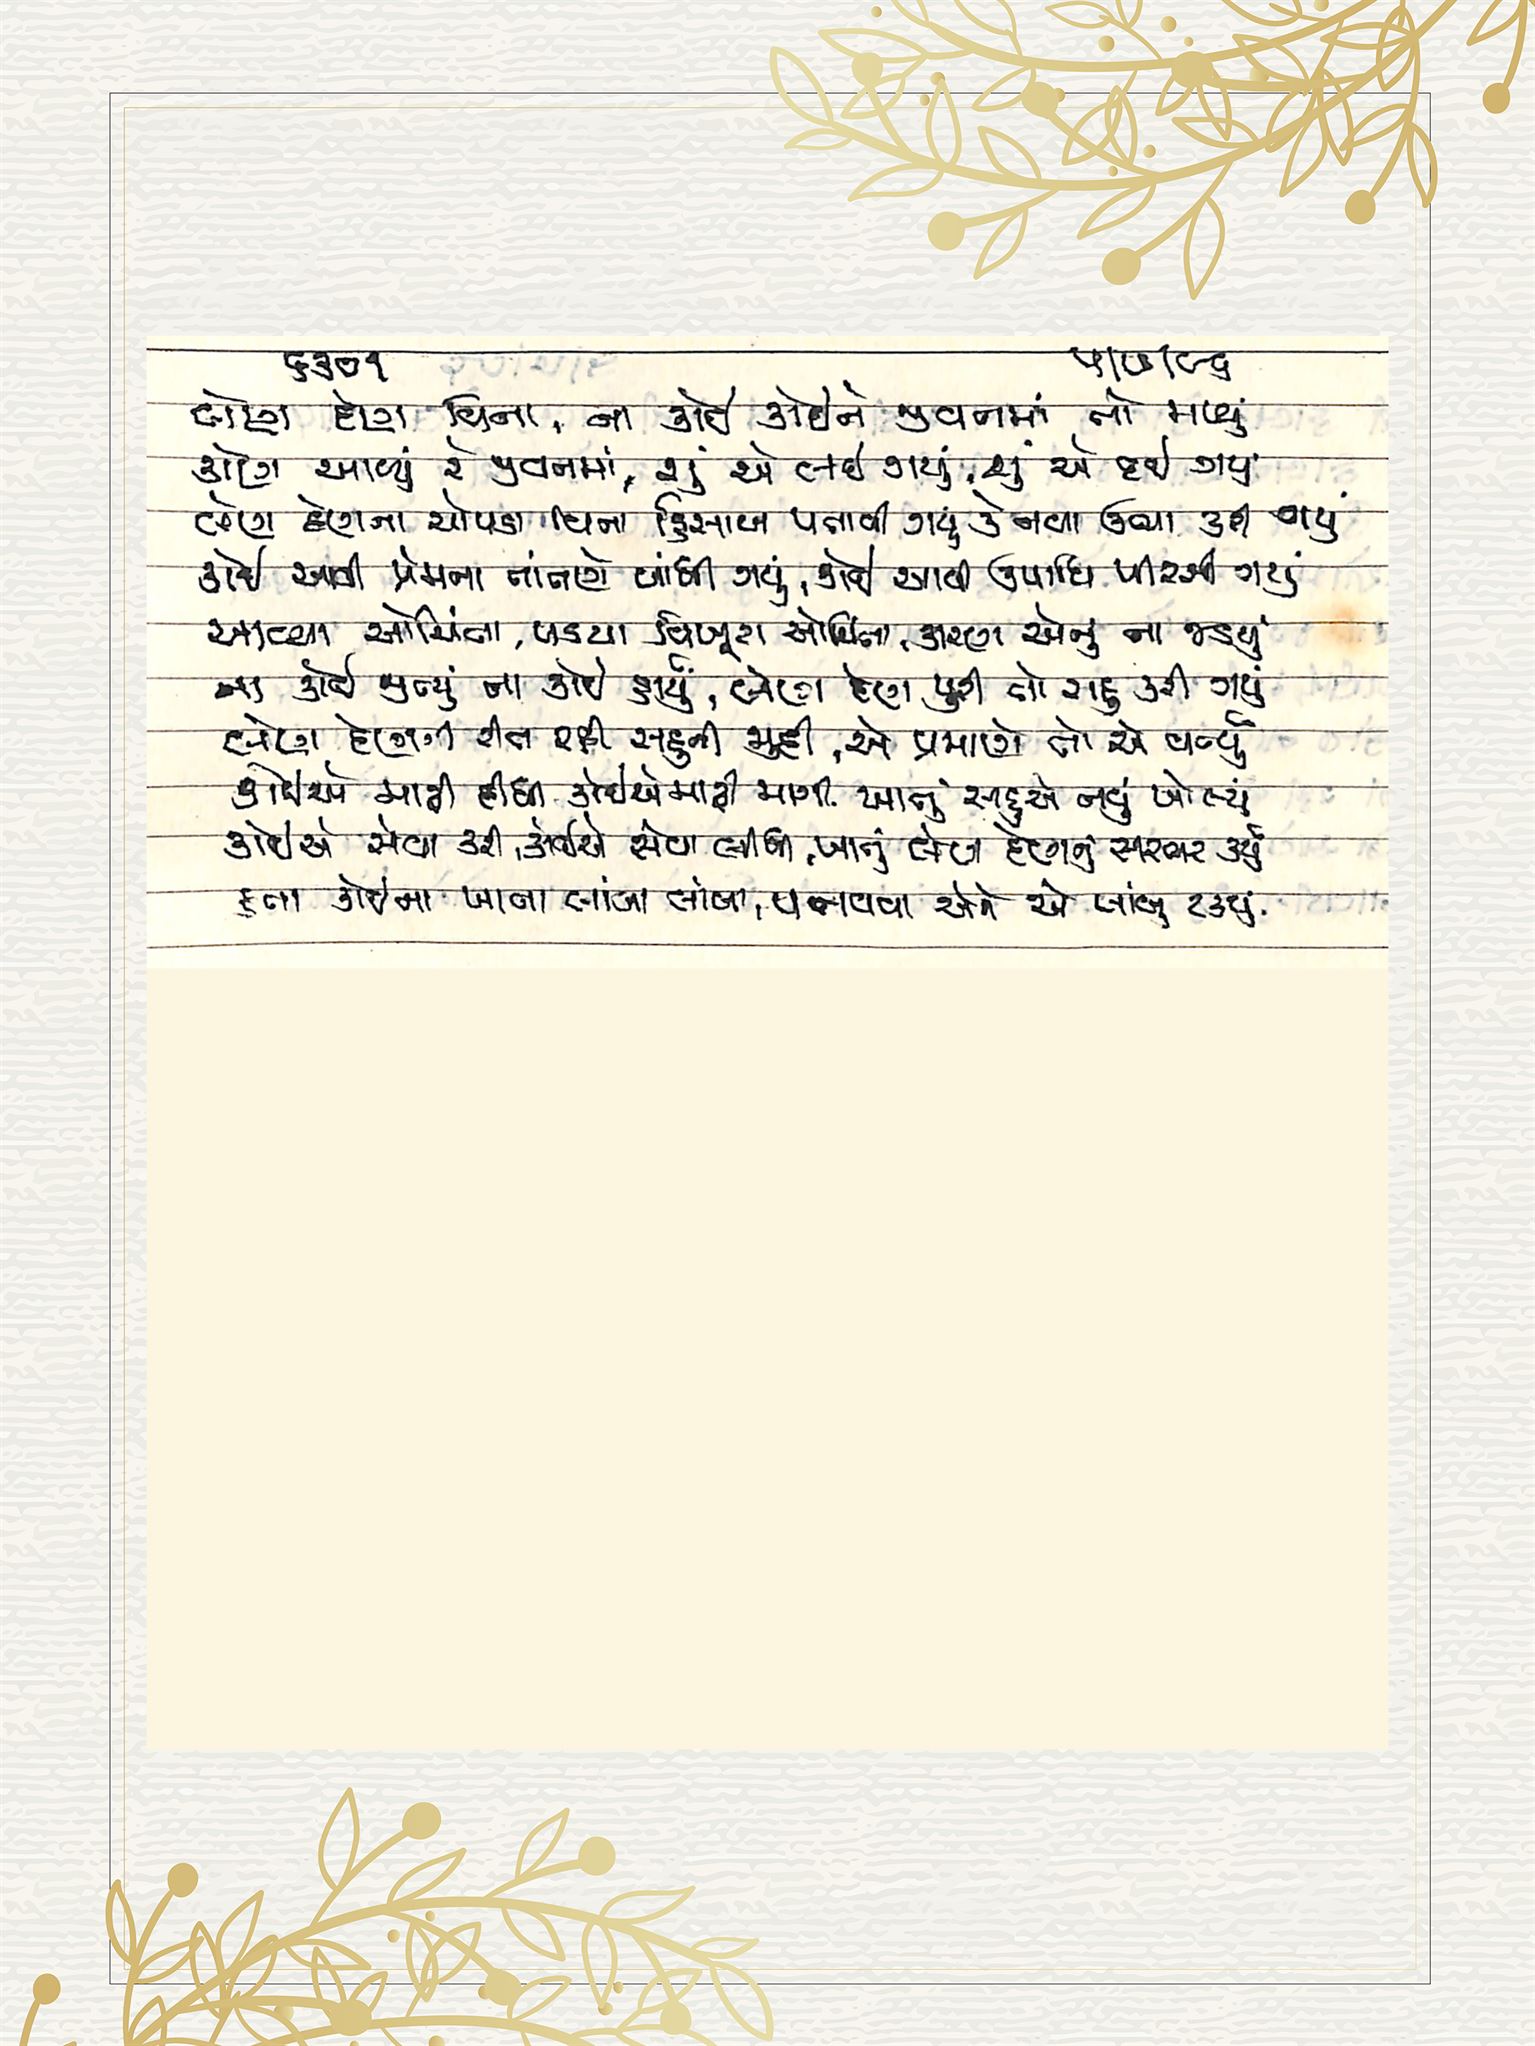 ૬૩૦૧
લેણા દેણા વિના, ના કોઈ કોઈને જીવનમાં તો મળ્યું
કોણ આવ્યું રે જીવનમાં, શું એ લઈ ગયું, શું એ દઈ ગયું
લેણા દેણાના ચોપડા વિના હિસાબ પતાવી ગયું કે નવા ઊભા કરી ગયું
કોઈ આવી પ્રેમના તાંતણે બાંધી ગયું, કોઈ આવી ઉપાધિ પીરસી ગયું
આવ્યા ઓચિંતા, પડયા વિખૂટા ઓચિંતા, કારણ એનું ના જડયું
ના કોઈ જીત્યું ના કોઈ હાર્યું, લેણા દેણા પુરી તો સહુ કરી ગયું
લેણા દેણાની રીત રહી સહુની જુદી, એ પ્રમાણે તો એ વર્ત્યું
કોઈએ માફી દીધી કોઈએ માફી માગી. ખાનું સહુએ નવું ખોલ્યું
કોઈએ સેવા કરી, કોઈએ સેવા લીધી, ખાનું લેણા દેણાનું સરભર કર્યું
હતા કોઈના ખાતા લાંબા લાંબા, પતાવવા એને એ લાંબુ ટકયું.